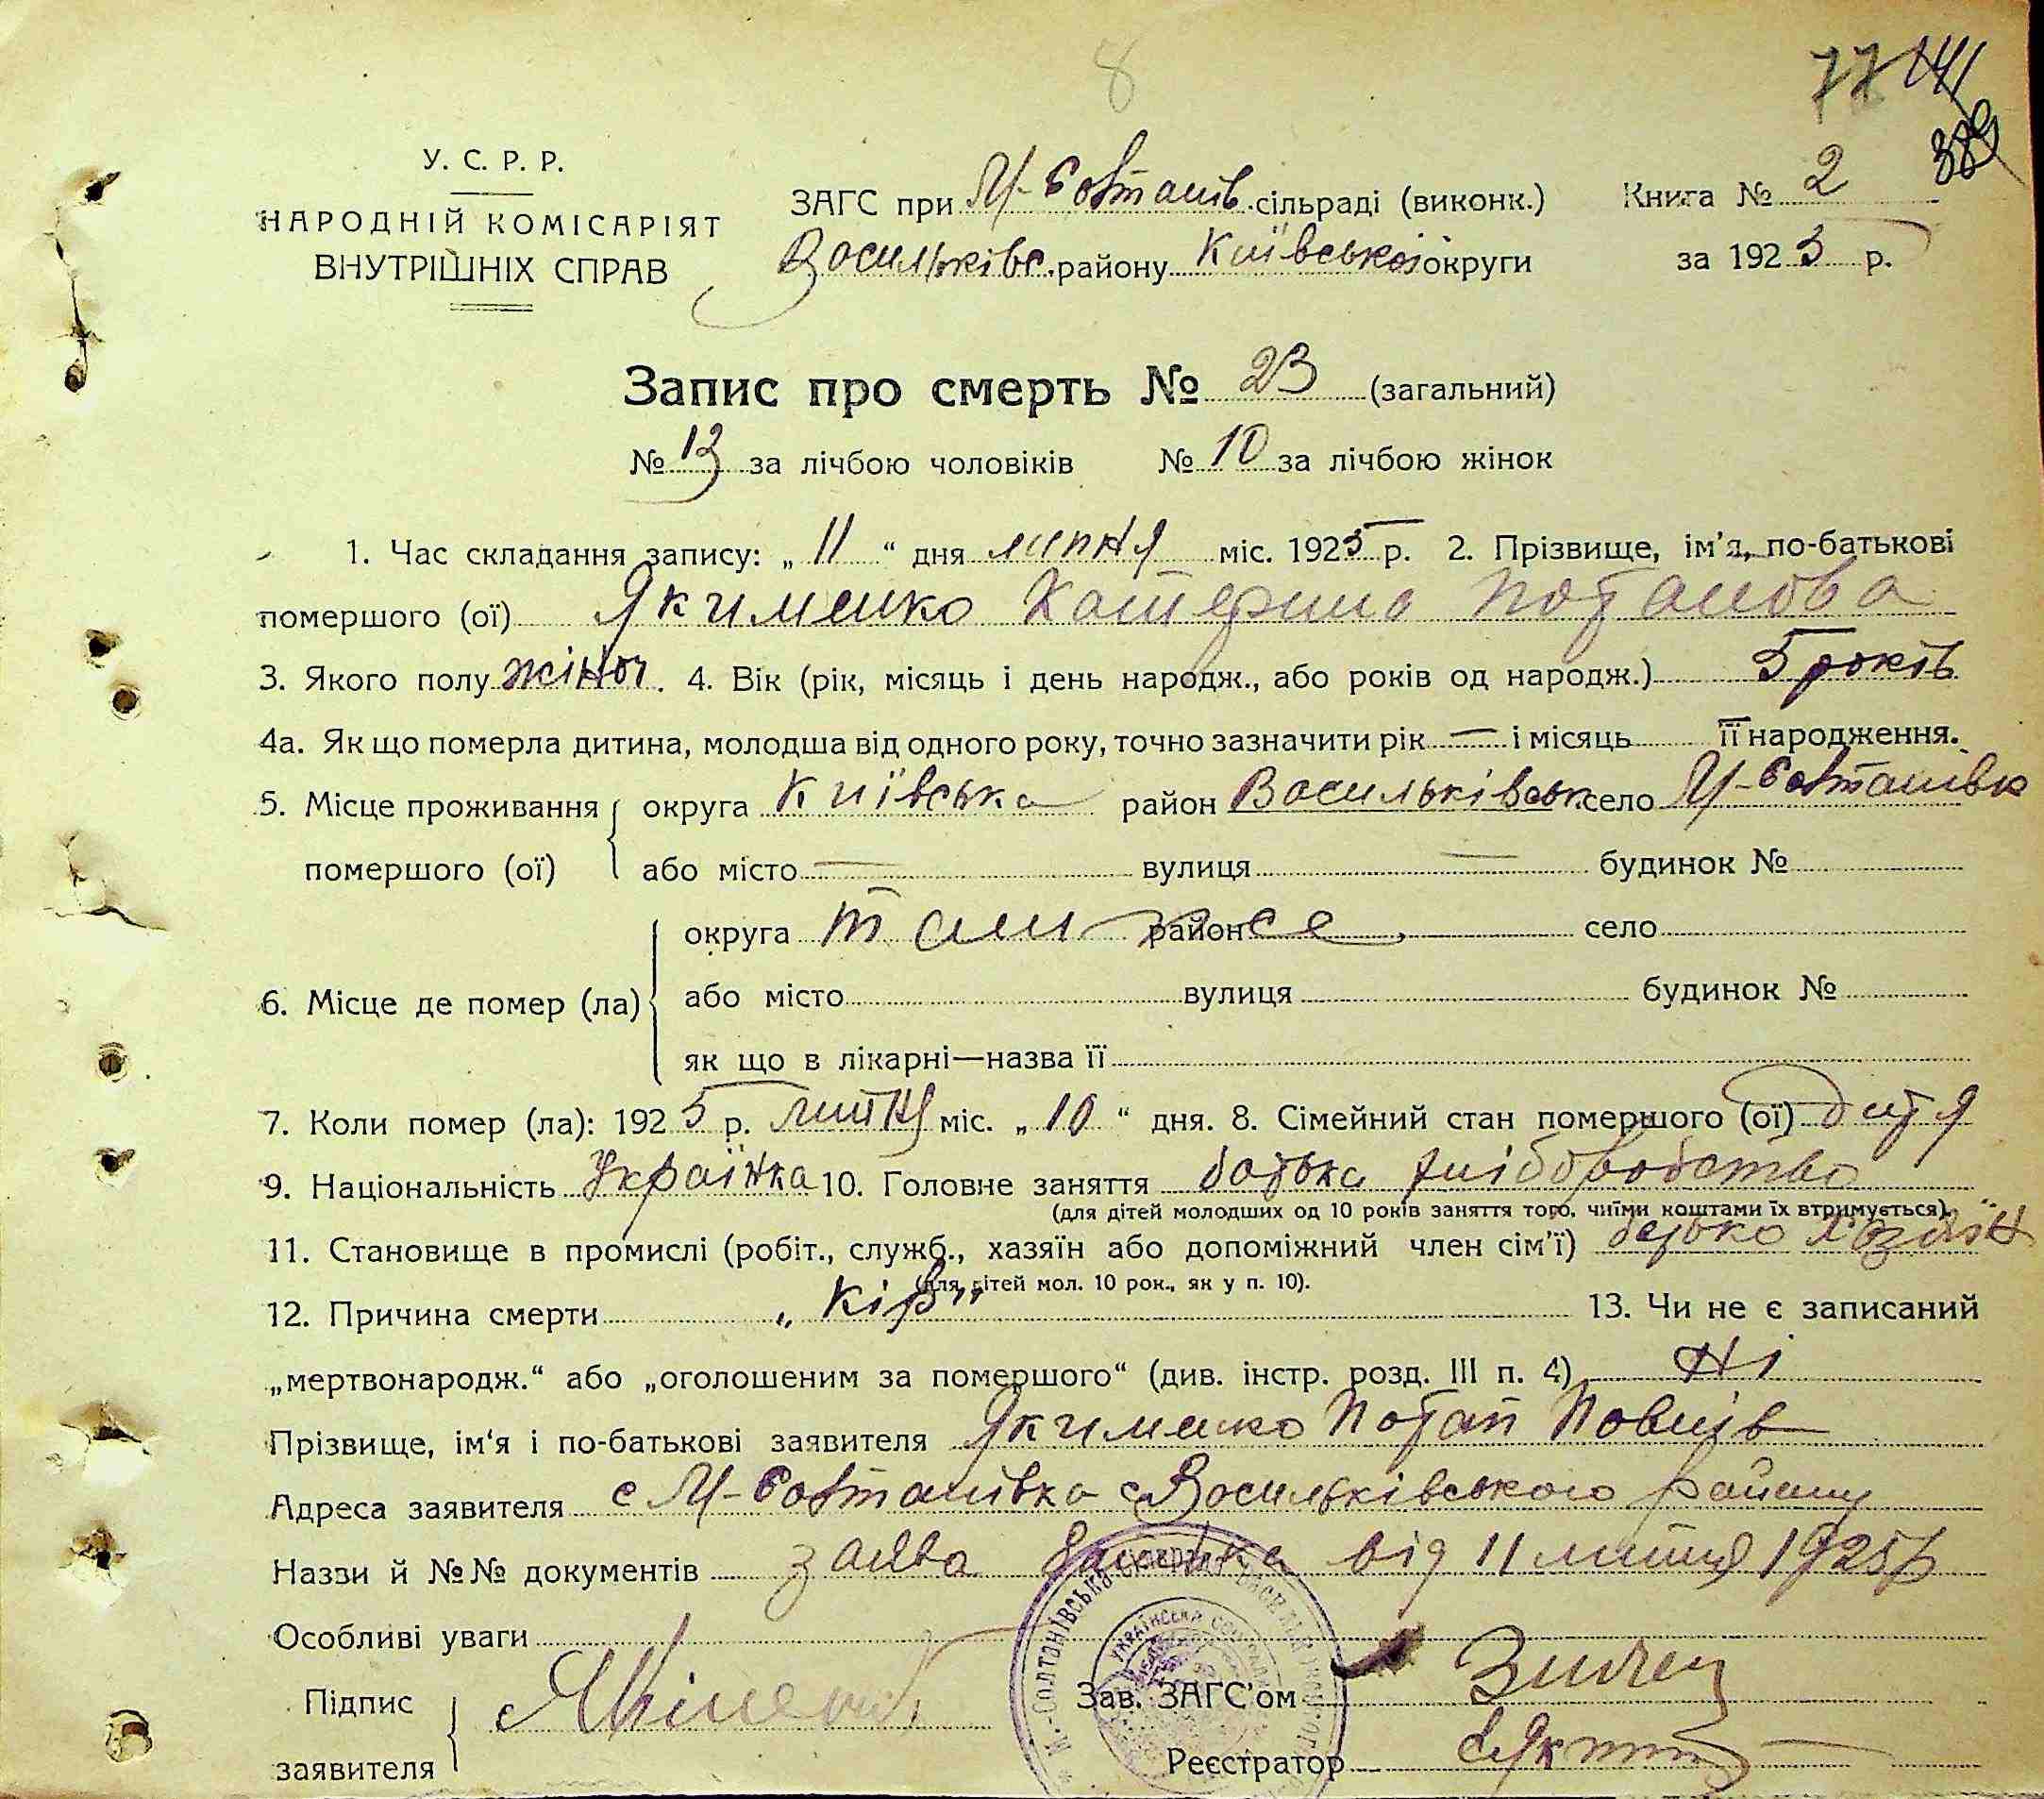 8
77 141
389
У. С. Р. Р.
НАРОДНІЙ КОМІСАРІЯТ
ВНУТРІШНІХ СПРАВ
ЗАГС при М-Солтанів. сільраді (виконк.)
Васильківс. району Київської округи
Книга № 2
за 1925 р.
Запис про смерть № 23 (загальний)
№ 13 за лічбою чоловіків № 10 за лічбою жінок
1. Час складання запису: „ 11 “ дня липня міс. 1925 р. 2. Прізвище, ім'я, по-батькові
помершого (ої) Якименко Катерина Потапова
3. Якого полу жіноч. 4. Вік (рік, місяць і день народж., або років од народж.) 5 років
4а. Як що померла дитина, молодша від одного року, точно зазначити рік — і місяць її народження.
5. Місце проживання округа Київська район Васильківськ село М-Солтанівк
помершого (ої) або місто — вулиця — будинок №
округа там же район село
6. Місце де помер (ла) або місто вулиця будинок №
як що в лікарні—назва її
7. Коли помер (ла): 1925 р. липня міс. „ 10 “ дня. 8. Сімейний стан помершого (ої) дитя
9. Національність Українка 10. Головне заняття батька хліборобство
(для дітей молодших од 10 років заняття того, чиїми коштами їх втримується).
11. Становище в промислі (робіт., служб., хазяїн або допоміжний член сім'ї) батько хазяїн
(для дітей мол. 10 рок., як у п. 10).
12. Причина смерти „ Кір “ 13. Чи не є записаний
„мертвонародж.“ або „оголошеним за помершого“ (див. інстр. розд. III п. 4) Ні
Прізвище, ім'я і по-батькові заявителя Якименко Потап Павлів
Адреса заявителя с М-Солтанівка Васильківського району
Назви й №№ документів заява батька від 11 липня 1925 р
Особливі уваги
Підпис
заявителя
Зав. ЗАГС'ом
Реєстратор
М.-СОЛТОНІВСЬКА
УКРАЇНСЬКА